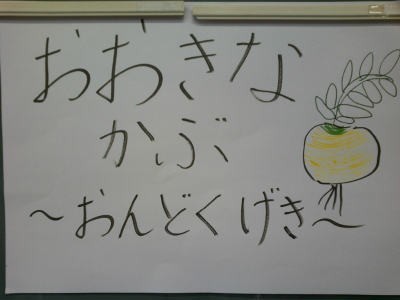 おおきな
かぶ
～おんどくげき～